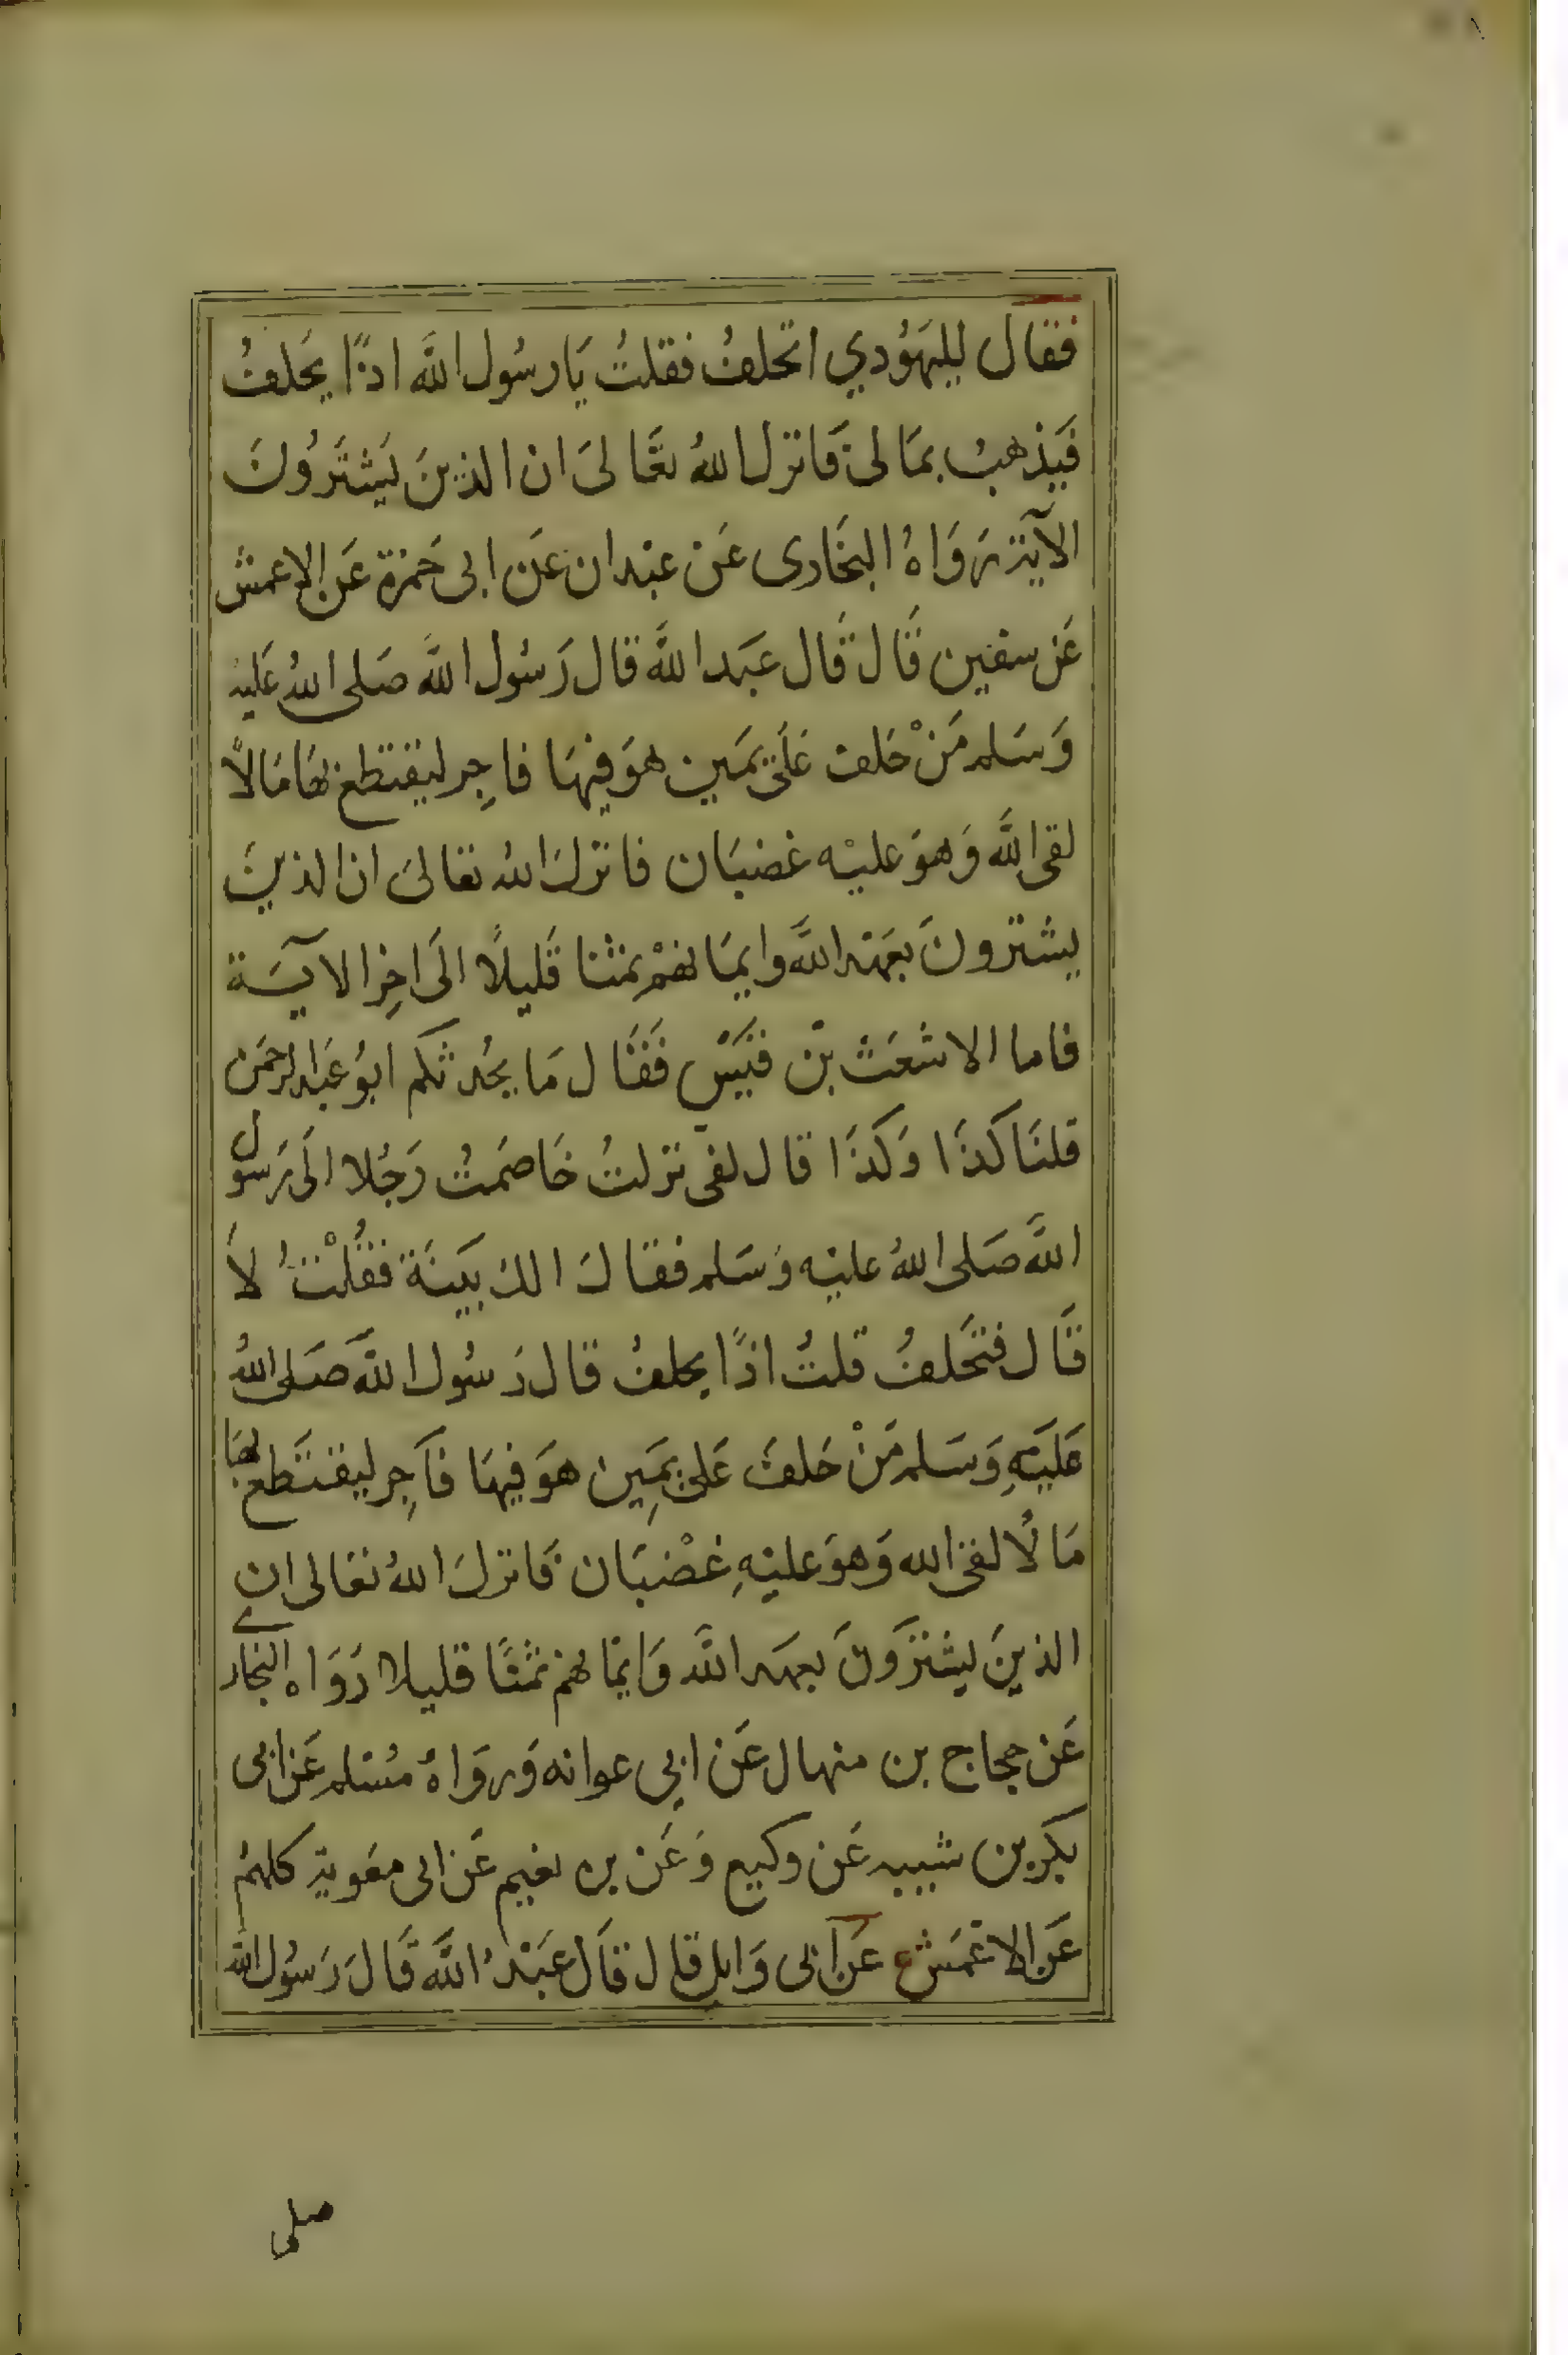 فقال لليهُودي اتحلفُ فقلتُ يَارسُول اللَّه اذًا يَحلفُ
فيَذهبُ بمَالى فَانزل اللهُ تعَالىَ ان الذينَ يَشترُونَ
الآية رَوَاهُ البخَارى عَن عبْدان عَن ابى حَمزة عَن الاعمش
عَن سفين قَال قَال عَبَد اللَّه قال رَسُول اللَّه صَلى اللهُ عَليْه
وَسَلم مَنْ حَلف عَلَى يمَين هوَ فيهَا فاجِر ليقتطع بهَا مَالاً
لقى اللَّه وَهوَ عليْه غضبَان فانزلَ اللهُ تعالىَ ان الذينَ
يشترونَ بعَهْد اللَّه وايمَانهمْ ثمنا قَليلاً الَى اخِر الآيَة
فاما الاشعَث بْن قَيَسْ فَقَال مَا يحُدثكم ابوُ عَبَد الرحمَن
قلنَا كَذَا وَكَذَا قال لفى نزلتُ خَاصَمتُ رَجُلا الَى رَسول
اللَّه صَلى اللهُ عليْه وَسَلم فقالَ الك بيَنَة فقُلْتُ لاَ
قَال فتَحَلفُ قلتُ اذًا يحلفُ قال رَسُول اللَّه صَلى اللهُ
عَليَهِ وَسَلم مَنْ حَلفَ عَلىَ يمَين هوَ فيهَا فَاجِر ليقتَطع بهَا
مَالًا لقى الله وَهوَ عليْهِ غضْبَان فَانزلَ اللهُ تعَالى ان
الذينَ يشترَونَ بعهد اللَّه وَايمَانهم ثمنًا قليلا رَوَاه البخارے
عَن حجاج بن منهال عَن ابي عوانه وَروَاهُ مُسْلم عَن ابى
بكر بن شيبه عَن وكيع وَعَن بره نعيم عَن ابى معَوية كلهمْ
عَن الاعْمَش عَن ابى وَايل قال قَال عَبْدُ اللَّه قَالَ رَسُول اللَّه
صلى